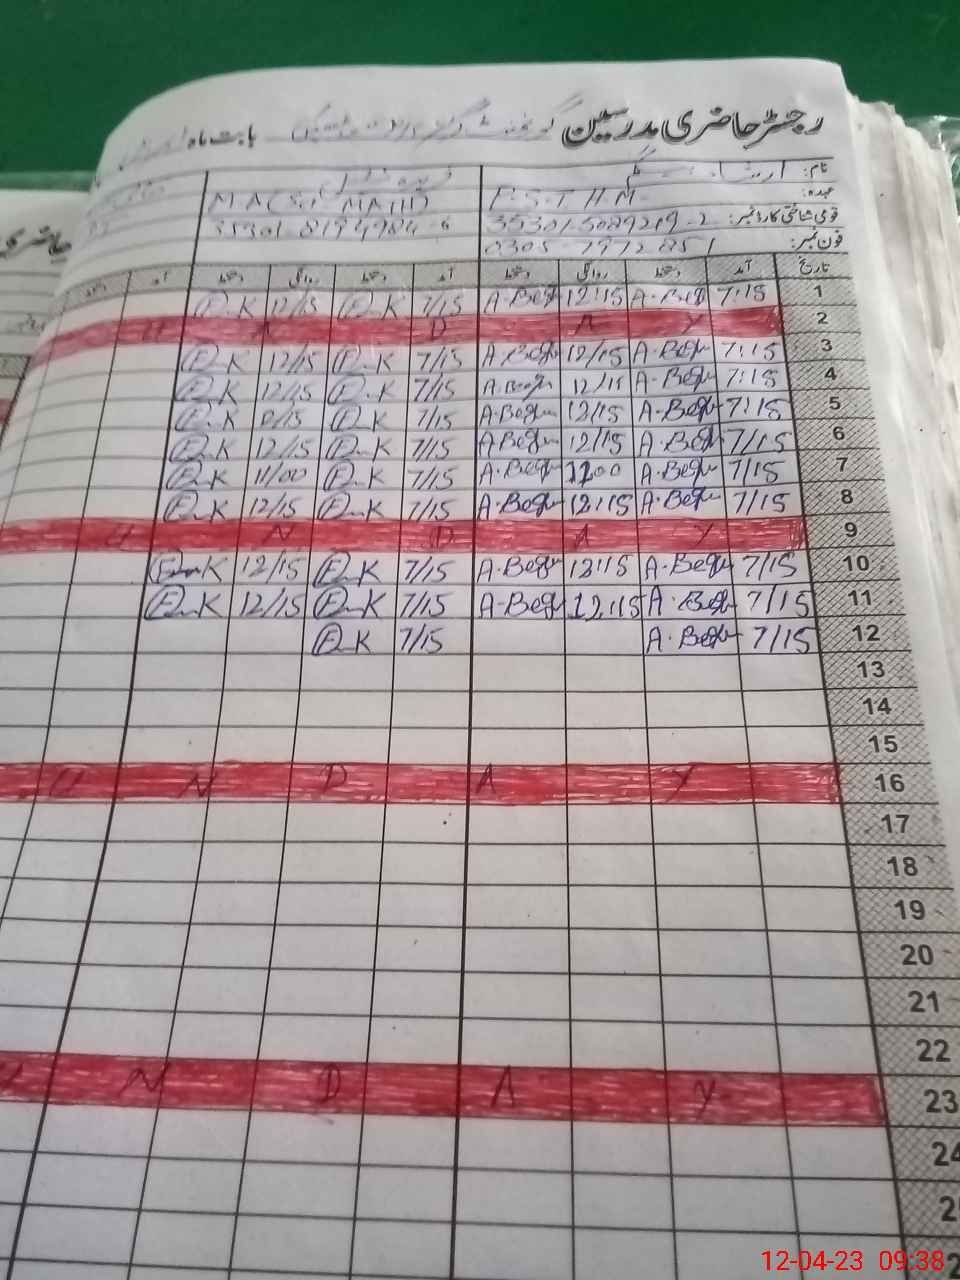 رجسٹر حاضری مدرسین گورنمنٹ گرلز بابت ماہ
نام:
عہدہ: P.S.T H.M MA(S.) MATH
قومی شناختی کارڈ نمبر: 35301-5089219-2 35301-8194984-6
فون نمبر: 0305-7972851
تاریخ آمد دستخط روانگی دستخط آمد دستخط روانگی دستخط آمد دستخط
1 7:15 A.Beg 12:15 A.Beg 7/15 E K 12/15 E K
2 S U N D A Y
3 7:15 A.Begu 12/15 A.Begu 7/15 E K 12/15 E K
4 7:15 A.Begu 12/15 A.Begu 7/15 E K 12/15 E K
5 7:15 A.Begu 12/15 A.Begu 7/15 E K 12/15 E K
6 7/15 A.Begu 12/15 A.Begu 7/15 E K 12/15 E K
7 7/15 A.Begu 11:00 A.Begu 7/15 E K 11/00 E K
8 7/15 A.Begu 12:15 A.Begu 7/15 E K 12/15 E K
9 U N D A Y
10 7/15 A.Begu 12:15 A.Begu 7/15 E K 12/15 E K
11 7/15 A.Begu 12:15 A-Begu 7/15 E K 12/15 E K
12 7/15 A.Begu 7/15 E K
13
14
15
16 U N D A Y
17
18
19
20
21
22
23 U N D A Y
24
2
2
12-04-23 09:38